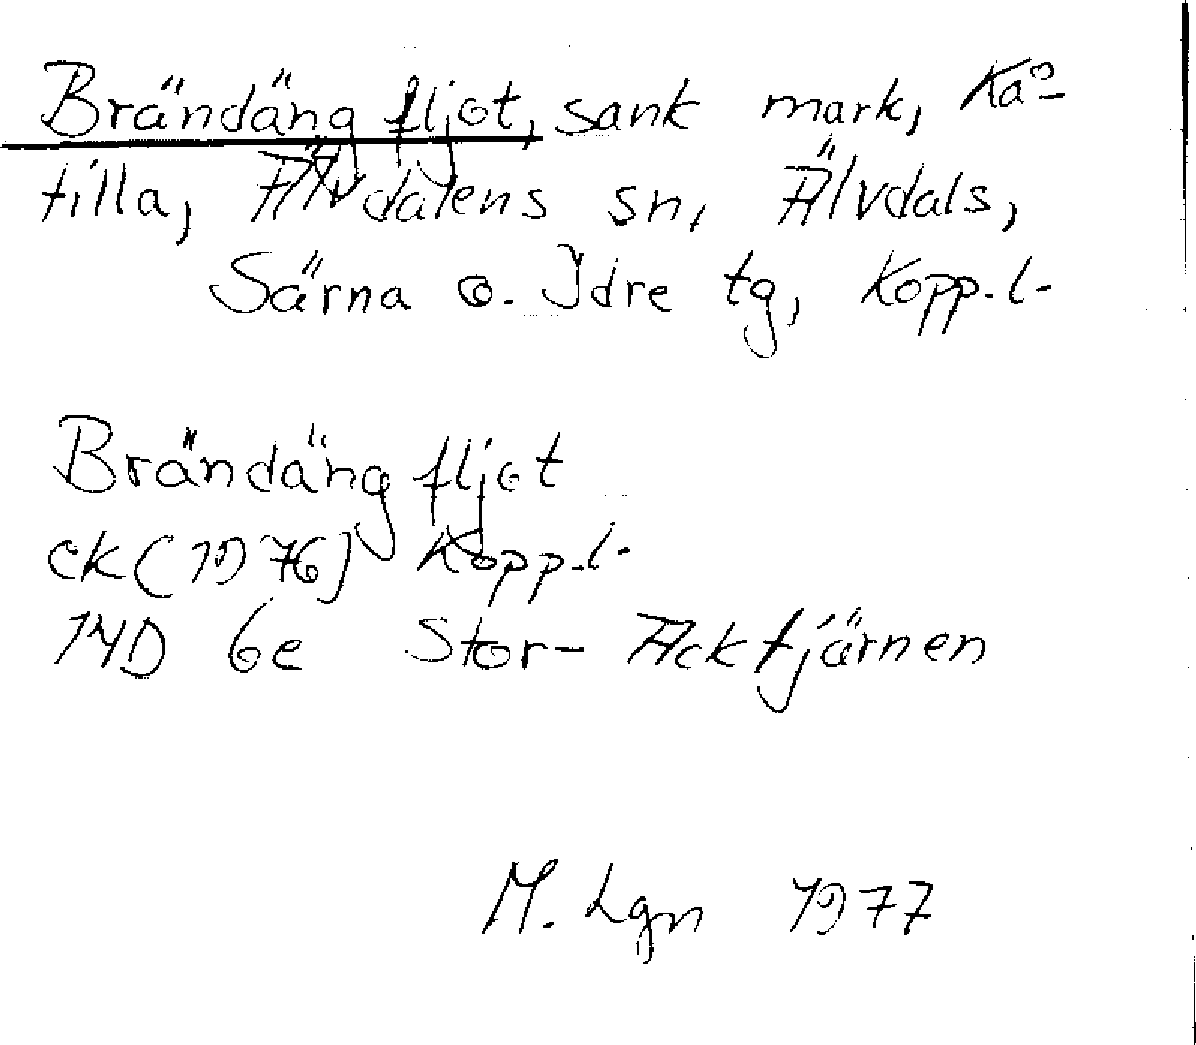 Brändäng fljot, sank mark, Kå-
tilla, Älvdalens sn, Älvdals,
Särna o. Idre tg, Kopp.l.
Brändäng fljot
ek (1976) Kopp.l.
14D 6e Stor-Acktjärnen
M. Lgn 1977